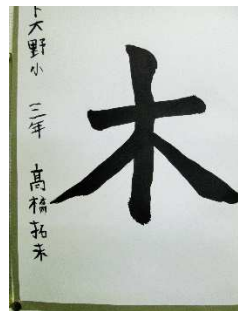 木
下大野小 三年 髙橋拓未